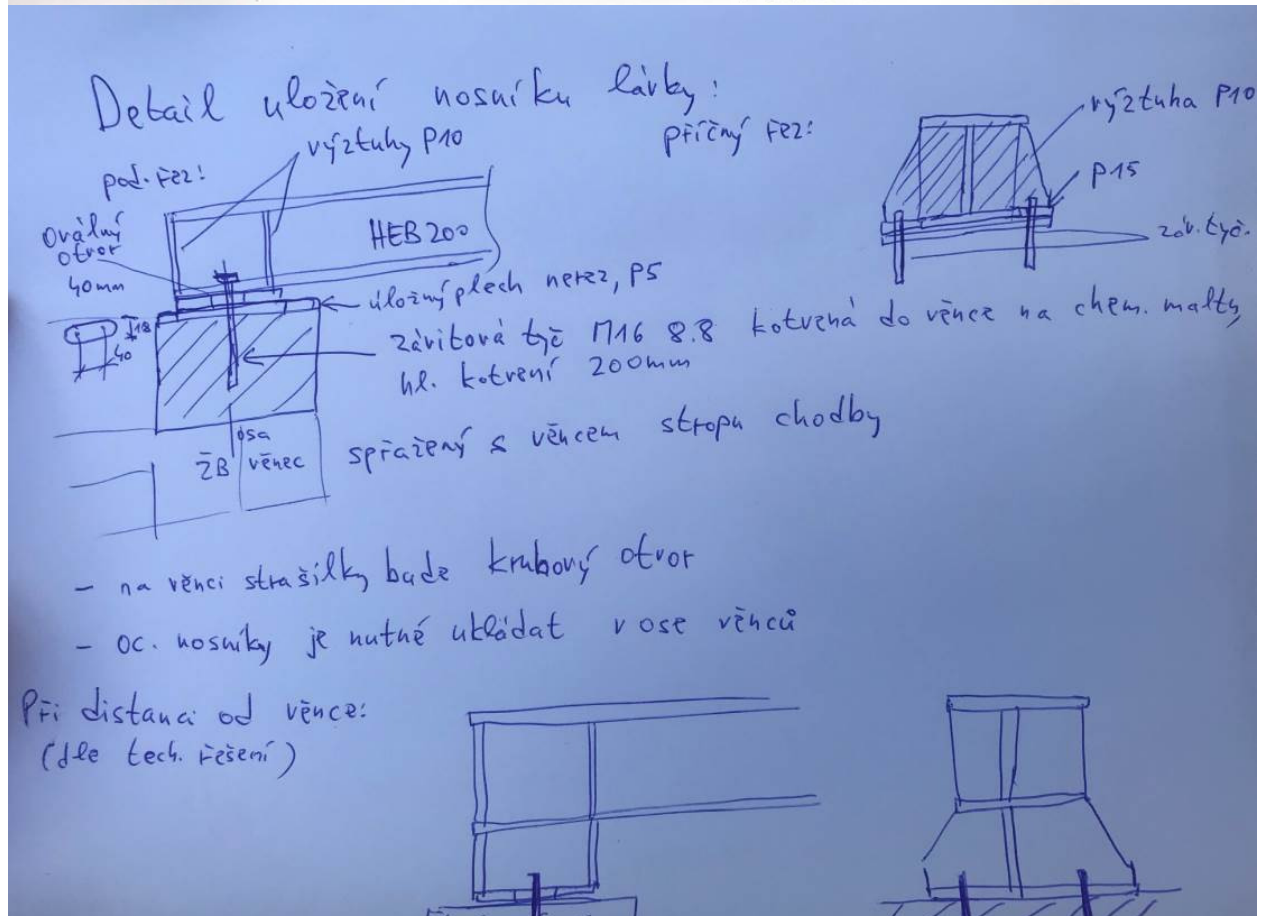 Detail uložení nosníku lávky:
příčný řez:
výztuhy P10
pod. řez:
výztuha P10
P15
záv. tyč.
Oválný
otvor
40mm
HEB 200
úložný plech nerez, P5
18
40
závitová tyč M16 8.8 kotvená do věnce na chem. malty,
hl. kotvení 200mm
osa
ŽB věnec
spřažený s věncem stropu chodby
- na věnci strašilky bude kruhový otvor
- oc. nosníky je nutné ukládat v ose věnců
Při distanci od věnce:
(dle tech. řešení)